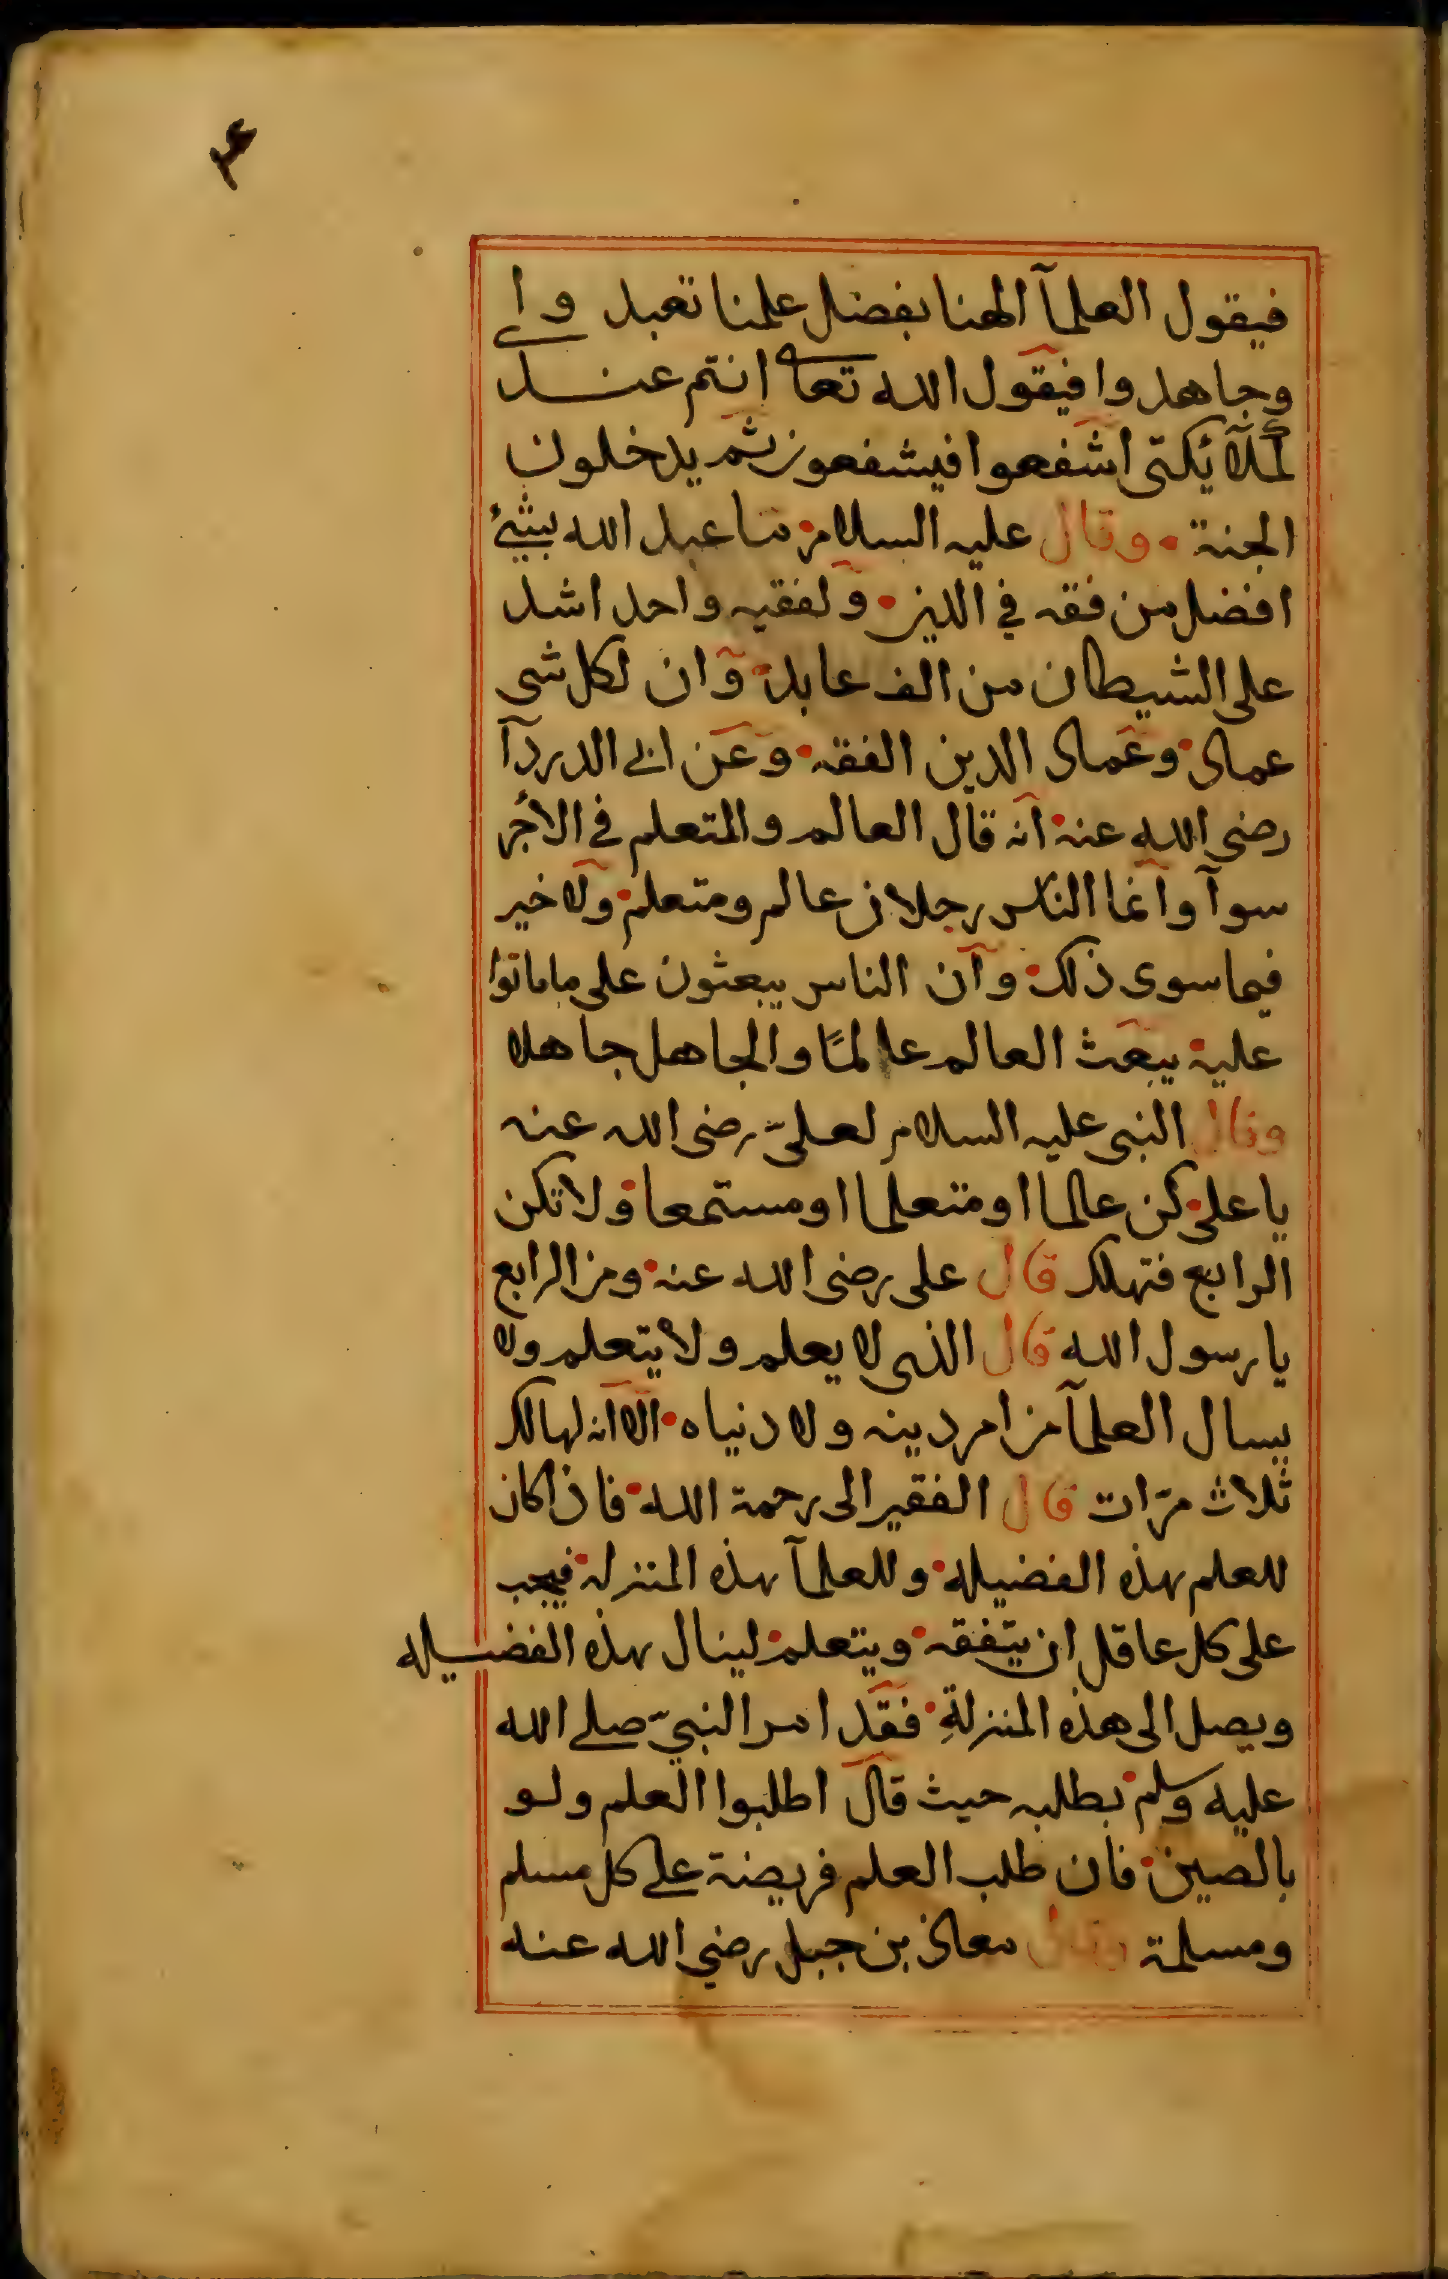 ٣٤
فيقول العلمآ الهنا بفضل علمنا تعبد وا
وجاهدوا فيقول الله تعالى انتم عند
لملآئكتى اشفعوا فيشفعون ثم يدخلون
الجنة • وقال عليه السلام ما عبد الله بشئ
افضل من فقه في الدين • ولفقيه واحد اشد
على الشيطان من الف عابد • وان لكل شى
عماد • وعماد الدين الفقه • وعن ابى الدردآ
رضى الله عنه • انه قال العالم والمتعلم في الأجر
سوآ وانما الناس رجلان عالم ومتعلم • ولا خير
فيما سوى ذلك • وان الناس يبعثون على ما ماتوا
عليه • يبعث العالم عالمًا والجاهل جاهلا
وقال النبى عليه السلام لعلىّ رضى الله عنه
يا على • كن عالما او متعلما او مستمعا • ولا تكن
الرابع فتهلك قال على رضى الله عنه • ومن الرابع
يا رسول الله قال الذى لا يعلم ولا يتعلم ولا
يسال العلمآ من امر دينه ولا دنياه • الا انه لهالك
ثلاث مرّات قال الفقير الى رحمة الله • فاذا كان
للعلم بهذه الفضيله • وللعلمآ بهذه المنزلة • فيجب
على كل عاقل ان يتفقه • ويتعلم • لينال بهذه الفضيله
ويصل الى هذه المنزلةِ • فقد امر النبيّ صلى الله
عليه وسلم • بطلبه حيث قال اطلبوا العلم ولو
بالصين • فان طلب العلم فريضة على كل مسلم
ومسلمة وقال معاذ بن جبل رضي الله عنه